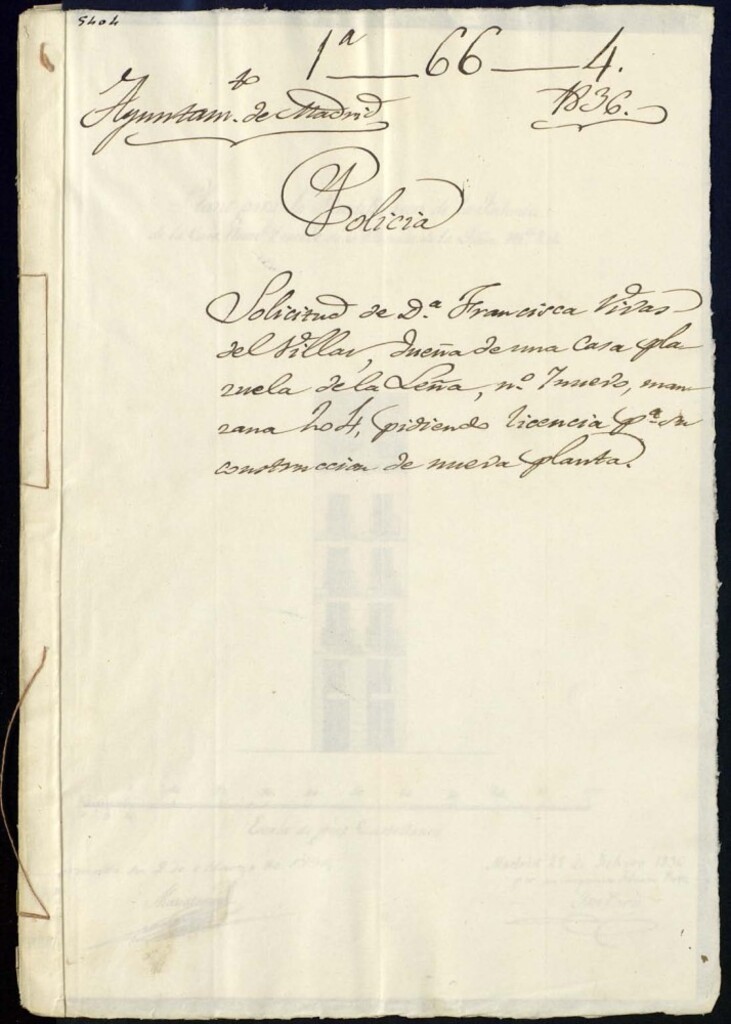 5404
1ª—66—4.
Ayuntam.to de Madrid 1836.
Policia
Solicitud de D.ª Francisca Vivas
del Villar, dueña de una Casa pla
zuela de la Leña, n.º 7 nuevo, man
zana 204, pidiendo licencia p.ª su
construccion de nueva planta.